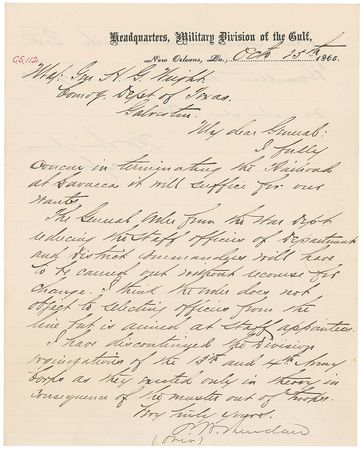 Headquarters, Military Division of the Gulf,
New Orleans, La., Octo 25th 1865.
65,112
Maj: Gen H. G. Wright
Com'd'g Dept of Texas.
Galveston.
My dear General:
I fully
concur in terminating the Railroad
at Lavacca it will suffice for our
wants.
The General Order from the War Dept
reducing the staff officers of Department
and District commanders will have
to be carried out without recourse for
change. I think the order does not
object to selecting officers from the
line but is aimed at Staff appointees.
I have discontinued the Division
organizations of the 13th and 4th Army
Corps as they existed only in theory in
consequence of the muster out of troops.
Very truly yours.
P. H. Sheridan
(over)